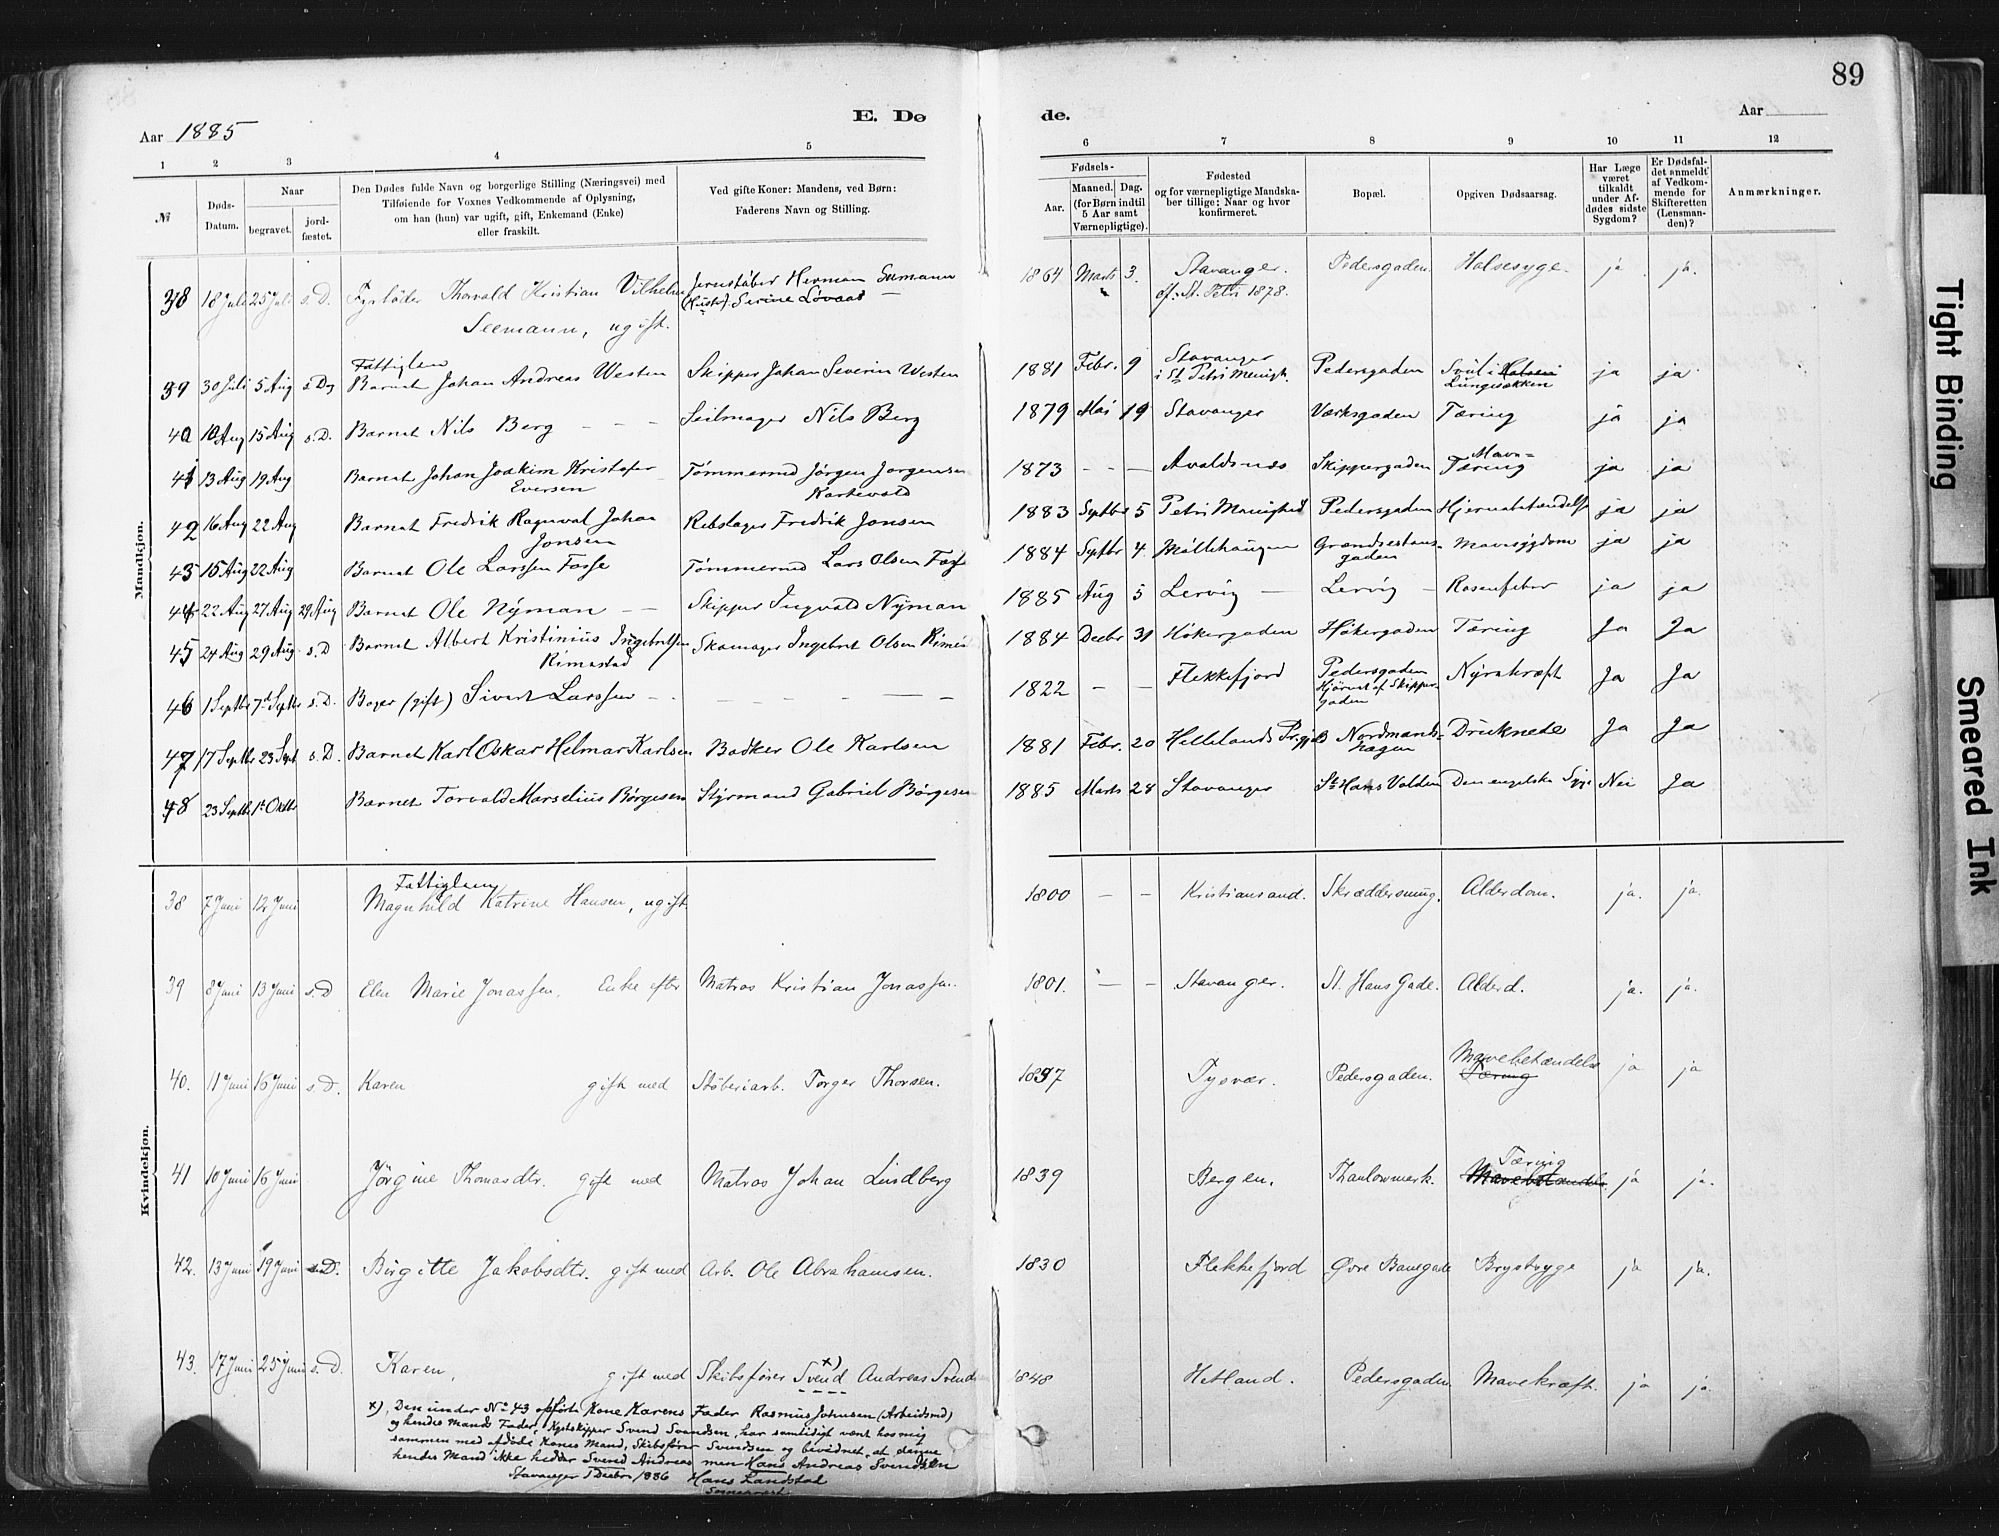 89
E. Dø de.
Aar 1885
Aar
1 2 3 4 5 6 7 8 9 10 11 12
№
Døds-Datum.
Naar
begravet.
jord-fæstet.
Den Dødes fulde Navn og borgerlige Stilling (Næringsvei) med
Tilføiende for Voxnes Vedkommende af Oplysning,
om han (hun) var ugift, gift, Enkemand (Enke)
eller fraskilt.
Ved gifte Koner: Mandens, ved Børn:
Faderens Navn og Stilling.
Fødsels-
Aar.
Maaned. Dag.
(for Børn indtil
5 Aar samt
Værnepligtige).
Fødested
og for værnepligtige Mandska-
ber tillige: Naar og hvor
konfirmeret.
Bopæl.
Opgiven Dødsaarsag.
Har Læge
været
tilkaldt
under Af-
dødes sidste
Sygdom?
Er Dødsfal-
det anmeldt
af Vedkom-
mende for
Skifteretten
(Lensman-
den)?
Anmærkninger.
Mandkjøn.
38 18 Juli 25 Juli s. D. Fyrbøder Thorvald Kristian Vilhelm Jernstøber Herman Seemann 1864 Marts 3. Stavanger. Pedersgaden. Halsesyge. ja ja.
Seemann, ugift. (Hustr.) Serine Lövaas St. Petri 1878.
Fattiglem
39 30 Juli 5 Aug s. D. Barnet Johan Andreas Westen Skipper Johan Severin Westen 1881 Febr. 9 Stavanger i St Petri Menigh. Pedersgaden Lungesækken ja ja
40 10 Aug 15 Aug s. D. Barnet Nils Berg - - - Seilmager Nils Berg 1879 Mai 19 Stavanger Værksgaden Tæring ja ja
41 13 Aug 19 Aug Barnet Johan Joakim Kristofer Eversen Tömmermd Jörgen Jorgensen 1873 - - Avaldsnes Skippergaden Mave=Tæring ja ja
42 16 Aug 22 Aug Barnet Fredrik Ragnval Johan Jonsen Rebslager Fredrik Jonsen 1883 Septbr 5 Petri Menighed Pedersgaden Hjernebetændelse ja ja
43 15 Aug 22 Aug Barnet Ole Larssen Fosse Tömmermd Lars Olsen 1884 Septbr 4. Möllehaugen gaden Mavesygdom ja ja
44 22 Aug 27 Aug 29 Aug Barnet Ole Nyman - - Skipper Ingvald Nyman 1885 Aug 5 Lervig - Lervig - Rosenfeber ja ja
45 24 Aug 29 Aug s. D Barnet Albert Kristinius Ingebretsen Rimestad Skomager Ingebret Olsen 1884 Decbr 31 Hökergaden Hökergaden Tæring Ja Ja
46 1 Septbr 7de Septbr s. D. (gift) Sivert Larssen - - 1822 - - Flekkefjord Pedersgaden Hjörnet af Skippergaden Nyrekræft Ja Ja
47 17 Septbr 23 Sept s. D. Barnet Karl Oskar Helmar Karlsen Bødker Ole Karlsen 1881 Febr. 20 Hillelands Nordmands=hagen Druknede Ja Ja
48 23 Septbr 1st Oktbr Barnet Torvald Marselius Börgesen Styrmand Gabriel Börgesen 1885 Marts 28 Stavanger St Hans Volden Den engelske Syge Nei Ja
Kvindekjøn.
Fattiglem
38 7 Juni 12 Juni Magnhild Katrine Hansen, ugift 1800 - - Kristiansand. Alderdom. ja. ja.
39 8 Juni 13 Juni s. D Elen Marie Jonassen. Enke efter Matros Kristian Jonassen. 1801. - - Stavanger. St. Hans Gade. Alderd. ja. ja.
40. 11 Juni 16 Juni s. D. Karen gift med Støberiarb. Torger Thorsen. 1837 Tysvær. Pedersgaden. Mavebetændelse Tæring ja ja
41 10 Juni 16 Juni Jørgine Thomasdtr. gift med Matros Johan Lindberg 1839 Bergen. Thaulowmark. Tæring Mavebetændelse ja ja.
42. 13 Juni 19 Juni s. D. Birgitte Jakobsdtr. gift med Arb. Ole Abrahamsen. 1830 Flekkefjord Øvre Banegade Brystsyge ja ja.
43. 17 Juni 25 Juni s. D. Karen, gift med Skibsfører Svend x) Andreas Svendsen 1848 Hetland. Pedersgaden. Mavekræft. ja ja.
x) Den under No 43 opförte Kone Karens Fader Rasmus Johnsen (Arbeidsmd)
og hendes Mands Fader, Kystskipper Svend Svendsen, har samtidigt været hos mig
sammen med afdøde Kones Mand, Skibsfører Svendsen og bevidnet, at denne
hendes Mand ikke hedder Svend Andreas men Hans Andreas Svendsen
Stavanger 1 Decbr 1886 Hans Landstad
Sogneprest
Tight Binding
Smeared Ink